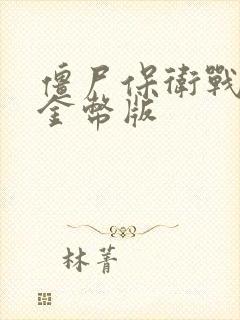 僵尸保衛戰
金幣版
林菁